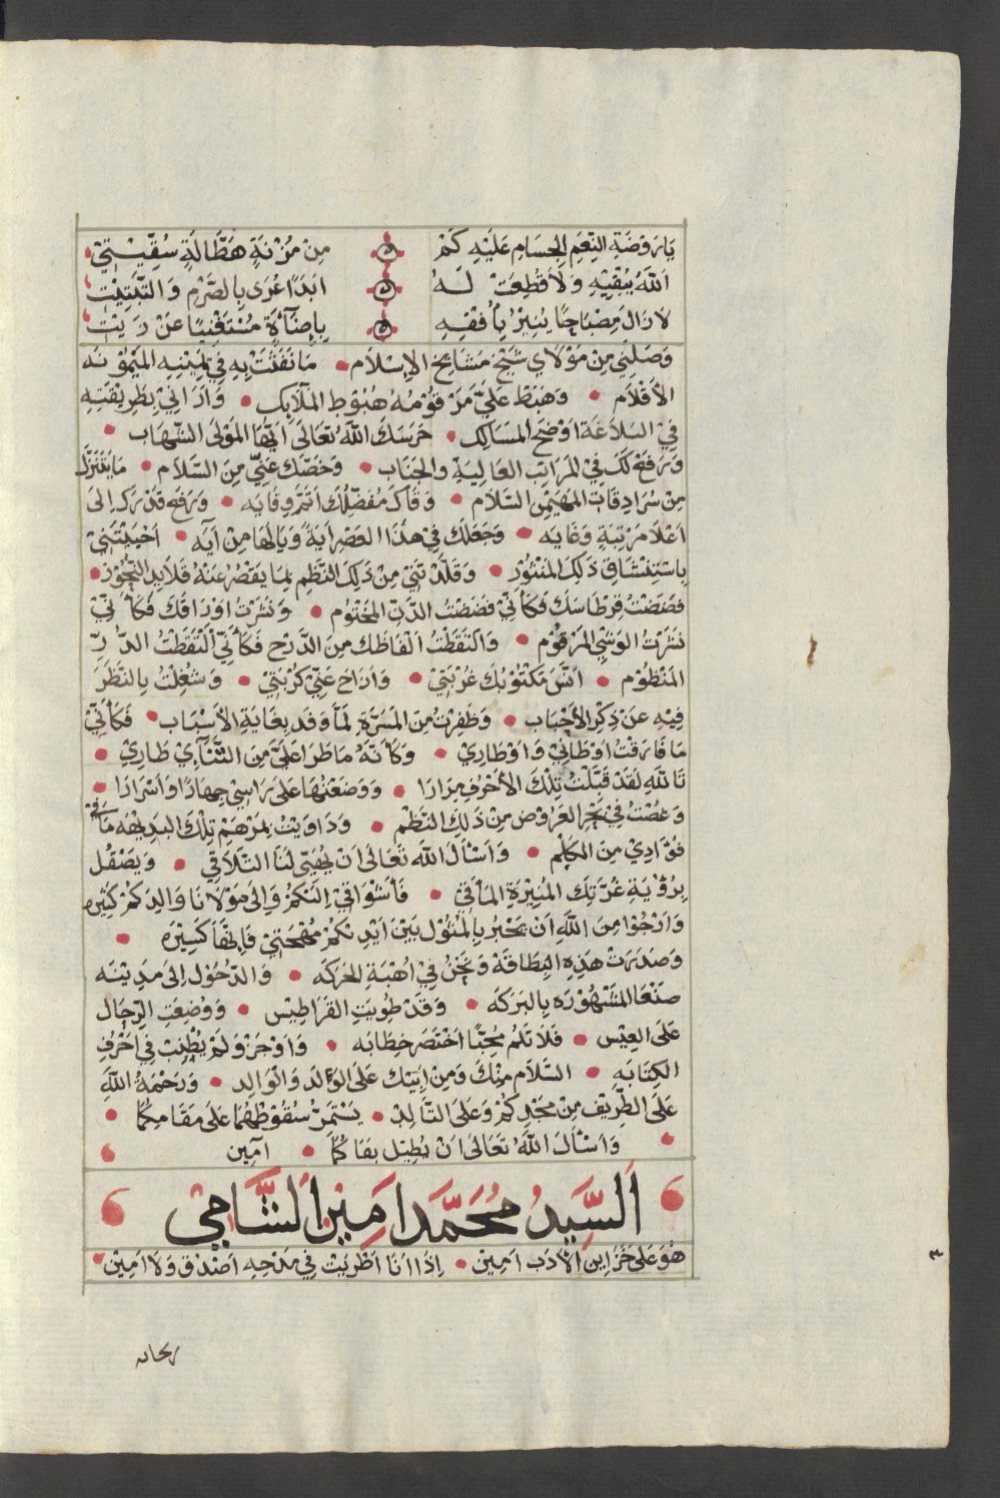 يَارَوْضَةِ النِّعَمِ الْجِسَامِ عَلَيْهِ كَمْ مِنْ مُزْنَةٍ هَطَّالَةٍ سُقِّيْتِيْ
اَللّٰهُ يُبْقِيْهِ وَلَا قُطِعَتْ لَهُ اَبَدًا عُرَى بِالصَّرْمِ وَالتَّبْتِيْتِ
لَازَالَ مِصْبَاحًا يُنِيْرُ بِأُفْقِهِ بِاِضَآءَةٍ مُسْتَغْنِيًا عَنْ زَيْتِ
وَصَلَنِي مِنْ مَوْلَاي شَيْخِ مَشَائِخِ الْاِسْلَام مَا نَفَثَتْ بِهِ فِيْ يَمِيْنِهِ الْمَيْمُوْنَه
الْاَقْلَام وَهَبَطَ عَلَيَّ مَرْقُوْمُهُ هُبُوْطِ الْمَلَآئِكِ وَاَرَانِيْ بِطَرِيْقَتِهِ
فِيْ الْبَلَاغَةِ اَوْضَحَ الْمَسَالِك حَرَسَكَ اللّٰهُ تَعَالَى اَيُّهَا الْمَوْلَى الشِّهَاب
وَرَفَعَ لَكَ فِيْ الْمَرَاتِبِ الْعَالِيَةِ وَالْجَنَاب وَخَصَّكَ عَنِّيْ مِنَ السَّلَام مَا يَتَنَزَّلُ
مِنْ سُرَادِقَاتِ الْمُهَيْمِنِ السَّلَام وَوَقَاكَ مُفَضِّلُكَ اَتَمَّ وِقَايَه وَرَفَعَ قَدْرَكَ اِلَى
اَعْلَا مَرْتَبَةٍ وَغَايَه وَجَعَلَكَ فِيْ هٰذَا الْعَصْرِ اٰيَةً وَيَالَهَا مِنْ اٰيَه اَحْيَيْتَنِيْ
بِاسْتِنْشَاقِ ذَلِكَ الْمَنْثُوْر وَقَلَّدْتَنِيْ مِنْ ذَلِكَ النَّظْمِ بِمَا يَقْصُرُ عَنْهُ قَلَايِدِ النُّحُوْر
فَضَضْتُ قِرْطَاسَكَ فَكَأَنِّيْ فَضَضْتُ الدَّنَّ الْمَخْتُوْم وَنَشَرْتُ اَوْرَاقَكَ فَكَأَنِّيْ
نَشَرْتُ الْوَشْيَ الْمَرْقُوْم وَالْتَقَطْتُ اَلْفَاظَكَ مِنَ الدَّرْجِ فَكَأَنِّيْ الْتَقَطْتُ الدُّرَّ
الْمَنْظُوْم اَنَّسَ مَكْتُوْبُكَ غُرْبَتِيْ وَاَزَاحَ عَنِّيْ كُرْبَتِيْ وَشُغِلْتُ بِالنَّظَرَ
فِيْهِ عَنْ ذِكْرِ الْاَحْبَاب وَظَفِرْتُ مِنَ الْمَسَرَّةِ لَمَّا وَفَدَ بِغَايَةِ الْاَسْبَاب فَكَأَنِّيْ
مَا فَارَقْتُ اَوْطَانِيْ وَاَوْطَارِيْ وَكَأَنَّهُ مَا طَرَا عَلَيَّ مِنَ التَّنَآءِيْ طَارِيْ
تَاللّٰهِ لَقَدْ قَبَّلْتُ تِلْكَ الْاَحْرُفِ مِرَارَا وَوَضَعْتُهَا عَلَى رَاسِيْ جِهَارًا وَاَسْرَارَا
وَغُصْتُ فِيْ بَحْرِ الْعَرُوْضِ مِنْ ذَلِكَ النَّظْمِ وَدَاوَيْتُ بِمَرْهَمِ تِلْكَ الْبَدِيْهَه مَا فِيْ
فُؤَادِيْ مِنَ الْكَلِمْ وَاَسْأَلُ اللّٰهَ تَعَالَى اَنْ يُهَيِّئَ لَنَا التَّلَاقِيْ وَيَصْقُلَ
بِرُؤْيَةِ غُرَّتِكَ الْمُنِيْرَةِ الْمَاٰقِيْ فَاَشْوَاقِيْ اِلَيْكُمْ وَاِلَى مَوْلَانَا وَالِدِكُمْ كَثِيْرَه
وَاَرْجُوْا مِنَ اللّٰهِ اَنْ يَجْبُرَ بِالْمُثُوْلِ بَيْنَ اَيْدِيْكُمْ مُهْجَتِيْ فَاِنَّهَا كَسِيْرَه
وَصَدَرَتْ هَذِهِ الْبِطَاقَةُ وَنَحْنُ فِيْ اُهْبَةِ الْحَرَكَه وَالدُّخُوْلِ اِلَى مَدِيْنَه
صَنْعَا الْمَشْهُوْرَه بِالْبَرَكَه وَقَدْ طُوِيَتِ الْقَرَاطِيْس وَوُضِعَتِ الرِّحَال
عَلَى الْعِيْس فَلَا تَلُمْ مُحِبًّا اخْتَصَرَ خِطَابَه وَاَوْجَزَ وَلَمْ يُطْنِبْ فِيْ اَحْرُفِ
الْكِتَابَه السَّلَام مِنْكَ وَمِنْ اَبِيْكَ عَلَى الْوَلَدِ وَالْوَالِد وَرَحْمَةُ اللّٰهِ
عَلَى الطَّرِيْفِ مِنْ مَجْدِكُمْ وَعَلَى التَّالِدْ يَسْتَمِرُّ سُقُوْطُهُمَا عَلَى مَقَامِكُمَا
وَاَسْأَلُ اللّٰهَ تَعَالَى اَنْ يُطِيْلَ بَقَاكُمَا اٰمِيْن
اَلسَّيِّدُ مُحَمَّد اَمِيْن الشَّامِيْ
هُوَ عَلَى خَزَايِنِ الْاَدَب اَمِيْن اِذَا اَنَا اَطْرَيْتُ فِيْ مَدْحِهِ اَصْدُقُ وَلَا اَمِيْن
ريحانه